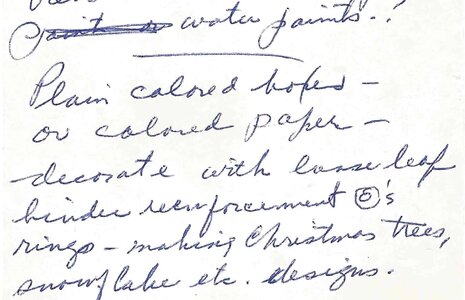 water paints..!
Plain colored boxes -
or colored paper -
decorate with loose leaf
binder reenforcement ⓞ's
rings - making Christmas trees,
snowflake etc. designs.